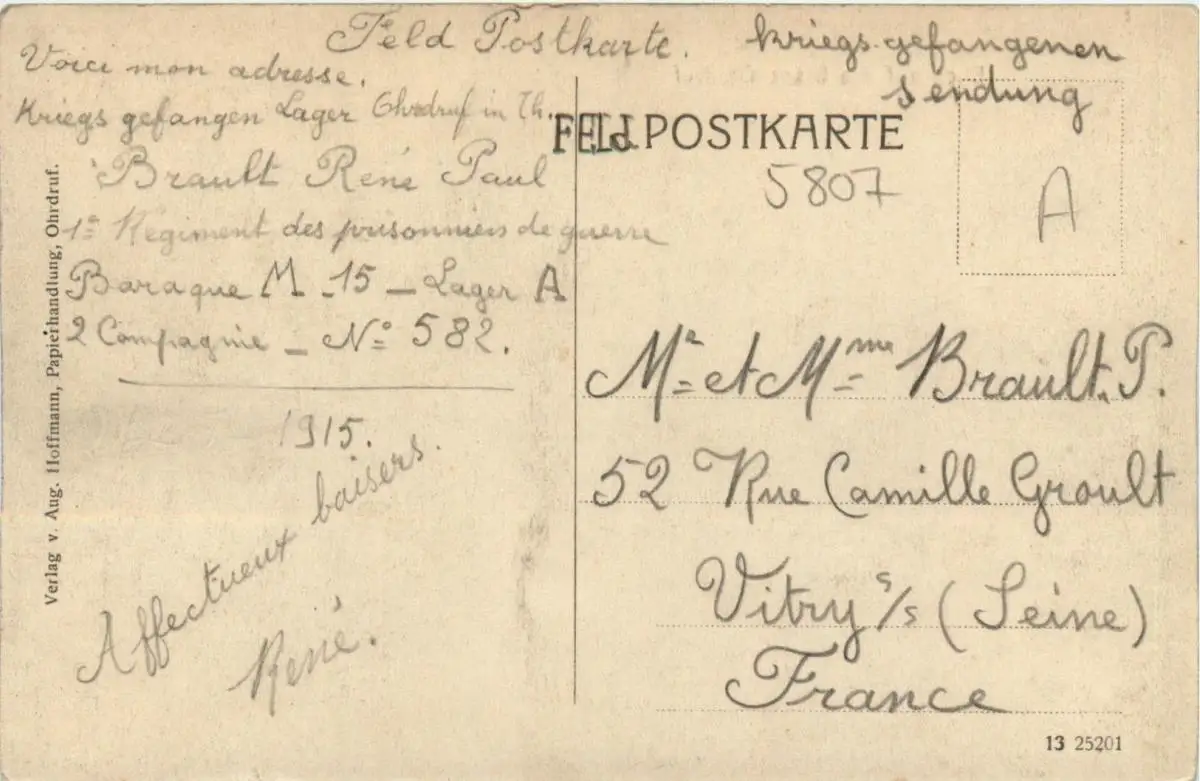 Feld Postkarte. Kriegsgefangenen
sendung
Voici mon adresse.
Kriegsgefangen Lager Ohrdruf in Th.
Brault René Paul
1e Régiment des prisonniers de guerre
Baraque M - 15 - Lager A
2 Compagnie - No 582.
1915.
Affectueux baisers.
René.
Verlag v. Aug. Hoffmann, Papierhandlung, Ohrdruf.
FELdPOSTKARTE
5807
A
Mr et Mme Brault. P.
52 Rue Camille Groult
Vitry s/s (Seine)
France
13 25201